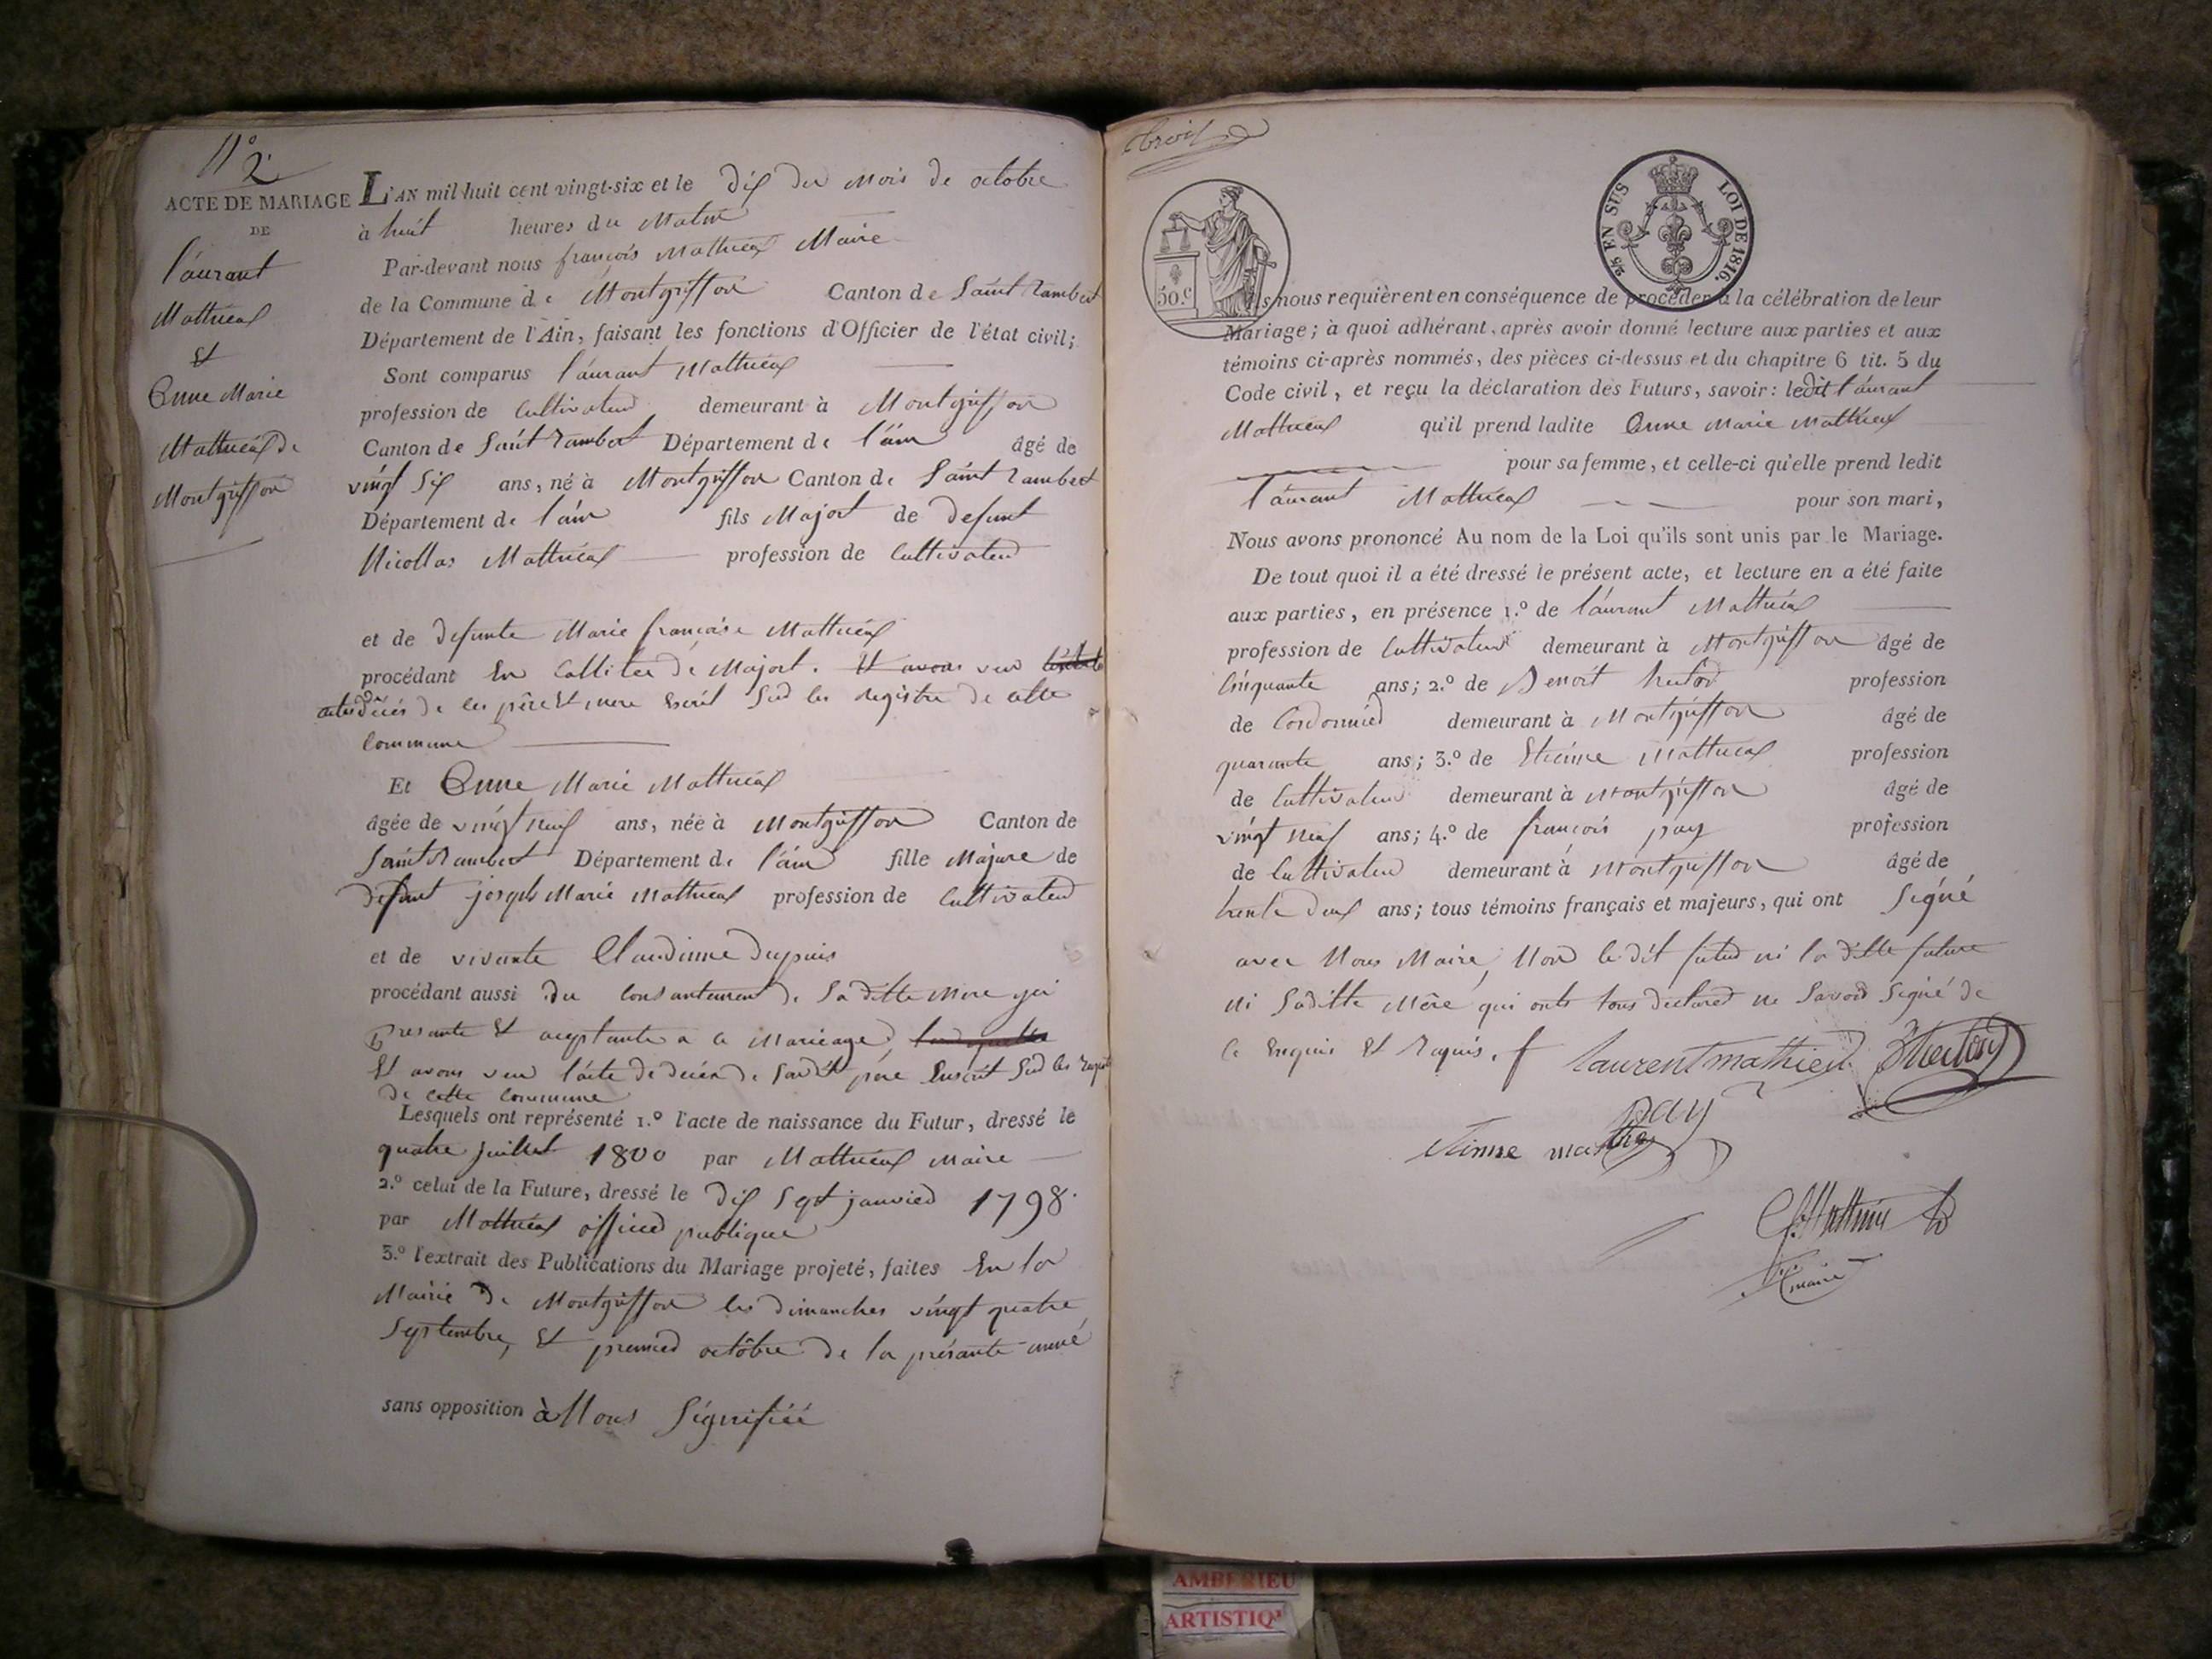 N° 2.
ACTE DE MARIAGE
DE
l'aurant
Mathieux
Et
Anne Marie
Mathieux de
Montgriffon
L'AN mil huit cent vingt-six et le dix du mois de octobre
à huit heures du Matin
Par-devant nous françois Mathieux Maire
de la Commune de Montgriffon Canton de Saint Rambert
Département de l'Ain, faisant les fonctions d'Officier de l'état civil;
Sont comparus l'aurant Mathieux
profession de Cultivateur demeurant à Montgriffon
Canton de Saint Rambert Département de l'ain âgé de
vingt Six ans, né à Montgriffon Canton de Saint Rambert
Département de l'ain fils Majort de defunt
Nicollas Mathieux profession de Cultivateur
et de defunte Marie françoise Mathieux
procédant En Callitee de Majort. Et avons veu
actes de décés de ses père Et mere Escrit Sur les registre de cette
Commune
Et Anne Marie Mathieux
âgée de vingt neuf ans, née à Montgriffon Canton de
Saint Rambert Département de l'ain fille Majure de
defunt joseph Marie Mathieux profession de Cultivateur
et de vivante Claudinne Dupuis
procédant aussi du Consantement de Sa ditte Mere yci
presante Et acceptante a ce Marieage,
Et avons veu l'acte de décés de Son dit père Enscrit Sur les
de cette Commune
Lesquels ont représenté 1.º l'acte de naissance du Futur, dressé le
quatre juillet 1800 par Mathieux Maire
2.º celui de la Future, dressé le dix Sept janvier 1798.
par Mathieux officier publique
3.º l'extrait des Publications du Mariage projeté, faites En la
Mairie de Montgriffon les dimanches vingt quatre
Septembre, Et premier octôbre de la présante anné
sans opposition à Nous Signifiéé
50.C
25 EN SUS LOI DE 1816.
Ils nous requièrent en conséquence de procéder à la célébration de leur
Mariage; à quoi adhérant, après avoir donné lecture aux parties et aux
témoins ci-après nommés, des pièces ci-dessus et du chapitre 6 tit. 5 du
Code civil, et reçu la déclaration des Futurs, savoir: ledit l'aurant
Mathieux qu'il prend ladite Anne Marie Mathieux
pour sa femme, et celle-ci qu'elle prend ledit
l'aurant Mathieux pour son mari,
Nous avons prononcé Au nom de la Loi qu'ils sont unis par le Mariage.
De tout quoi il a été dressé le présent acte, et lecture en a été faite
aux parties, en présence 1.º de l'aurant Mathieux
profession de Cultivateur demeurant à Montgriffon âgé de
Cinquante ans; 2.º de Benoit profession
de Cordonnier demeurant à Montgriffon âgé de
quarante ans; 3.º de Etienne Mathieux profession
de Cultivateur demeurant à Montgriffon âgé de
vingt neuf ans; 4.º de françois pay profession
de Cultivateur demeurant à Montgriffon âgé de
trente deux ans; tous témoins français et majeurs, qui ont Signé
avec Nous Maire, Non le dit futur ni la ditte future
ni Saditte Mêre qui onts tous declaret ne Savoir Signé de
Ce Enquis Et Requis.
laurent mathieu
pay
Etienne
maire
AMBERIEU
ARTISTIQ